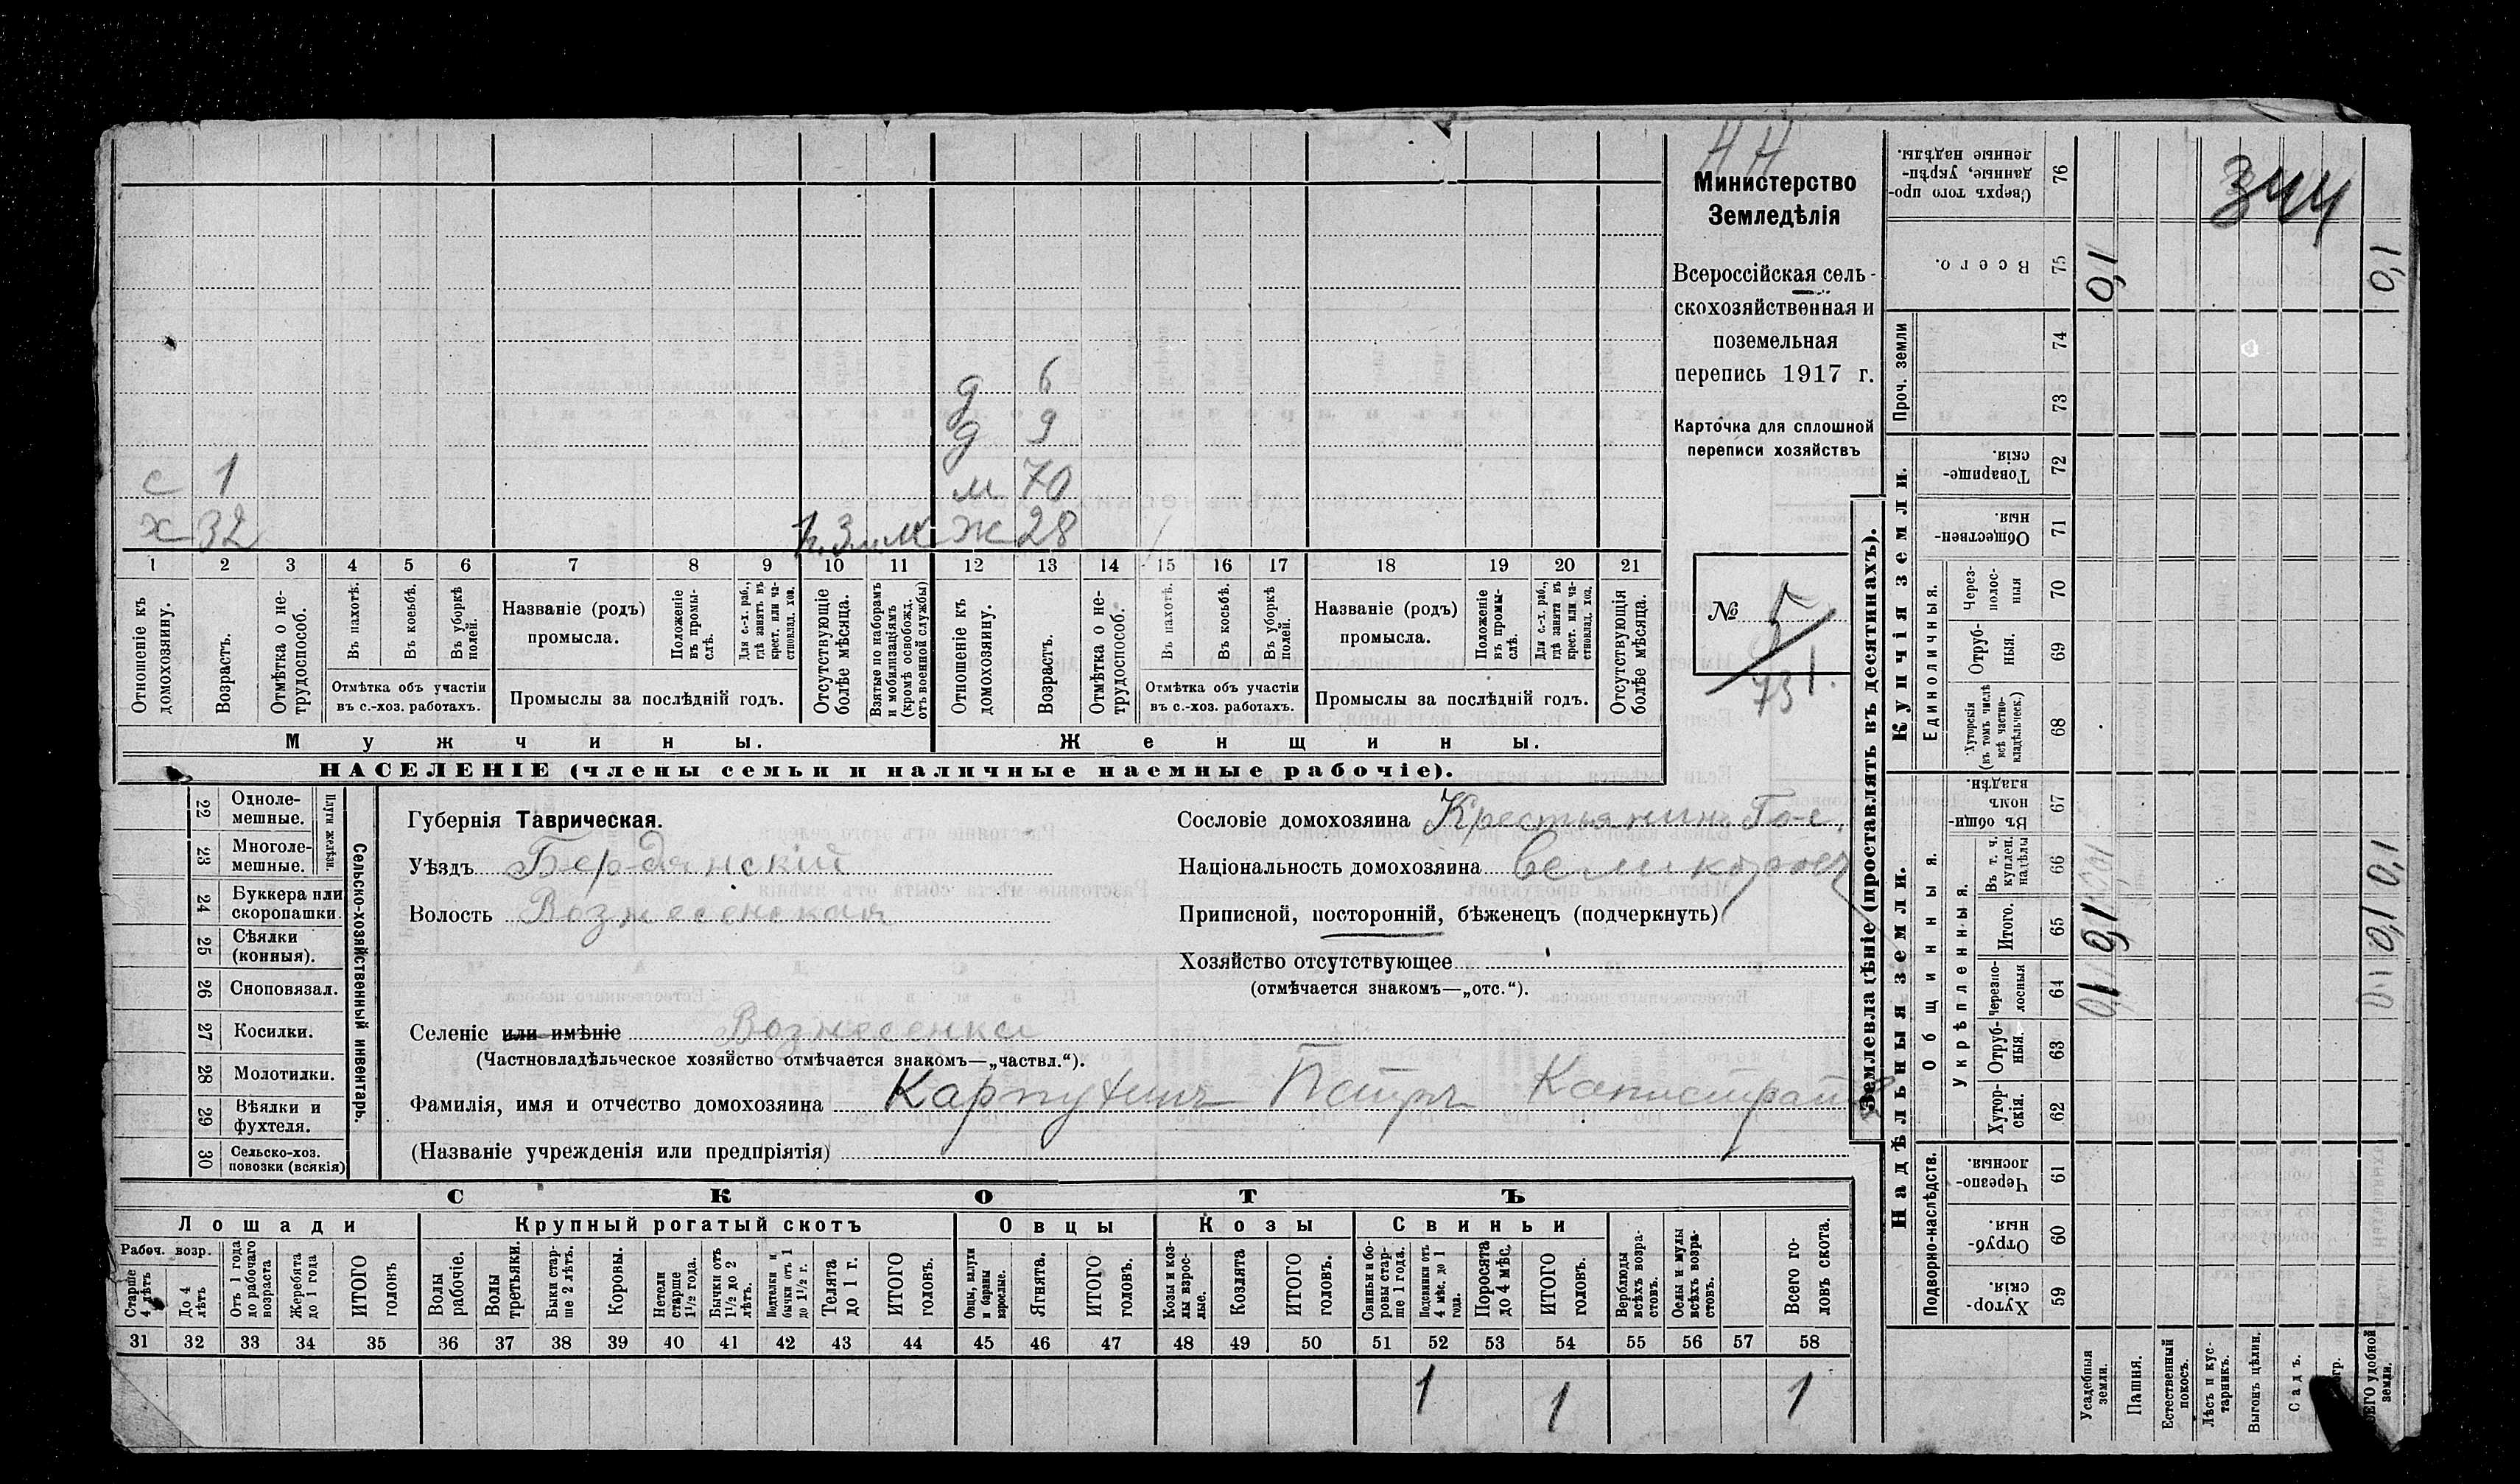 44
Министерство
Земледѣлія
Всероссійская сель-
скохозяйственная и
поземельная
перепись 1917 г.
Карточка для сплошной
переписи хозяйствъ
№ 5
731.
д 6
д 9
с 1 м 70
х 32 ж 28
1 2 3 4 5 6 7 8 9 10 11 12 13 14 15 16 17 18 19 20 21
Отношеніе къ домохозяину.
Возрастъ.
Отмѣтка о не-трудоспособ.
Въ пахотѣ.
Въ косьбѣ.
Въ уборкѣ полей.
Отмѣтка объ участіи
въ с.-хоз. работахъ.
Названіе (родъ)
промысла.
Положеніе въ промы-слѣ.
Для с.-х. раб., гдѣ занятъ въ крест. или ча-стновлад. хоз.
Промыслы за послѣдній годъ.
Отсутствующіе болѣе мѣсяца.
Взятые по наборамъ и мобилизаціямъ (кромѣ освобожд. отъ военной службы)
Отношеніе къ домохозяину.
Возрастъ.
Отмѣтка о не-трудоспособ.
Въ пахотѣ.
Въ косьбѣ.
Въ уборкѣ полей.
Отмѣтка объ участіи
въ с.-хоз. работахъ.
Названіе (родъ)
промысла.
Положеніе въ промы-слѣ.
Для с.-х. раб., гдѣ занята въ крест. или ча-стновлад. хоз.
Промыслы за послѣдній годъ.
Отсутствующія болѣе мѣсяца.
Мужчины.
Женщины.
НАСЕЛЕНІЕ (члены семьи и наличные наемные рабочіе).
22 Одноле-мешные.
23 Многоле-мешные.
Плуги желѣзн.
24 Буккера или скоропашки.
25 Сѣялки (конныя).
26 Сноповязал.
27 Косилки.
28 Молотилки.
29 Вѣялки и фухтеля.
30 Сельско-хоз. повозки (всякія)
Сельско-хозяйственный инвентарь.
Губернія Таврическая.
Уѣздъ Бердянскій
Волость Вознесенская
Сословіе домохозяина Крестьянинъ
Національность домохозяина Великоросъ
Приписной, посторонній, бѣженецъ (подчеркнуть)
Хозяйство отсутствующее
(отмѣчается знакомъ—„отс.“).
Селеніе или имѣніе Вознесенка
(Частновладѣльческое хозяйство отмѣчается знакомъ—„частвл.“).
Фамилія, имя и отчество домохозяина Карпухинъ Петръ
(Названіе учрежденія или предпріятія)
СКОТЪ
Лошади
Крупный рогатый скотъ
Овцы
Козы
Свиньи
Рабоч. возр.
Старше 4 лѣтъ
До 4 лѣтъ
Отъ 1 года до рабочаго возраста
Жеребята до 1 года
ИТОГО головъ
Волы рабочіе.
Волы третьяки.
Быки стар-ше 2 лѣтъ.
Коровы.
Нетели старше 1½ года.
Бычки отъ 1½ до 2 лѣтъ.
Подтелки и бычки отъ 1 до 1½ г.
Телята до 1 г.
ИТОГО головъ.
Овцы, валухи и бараны взрослые.
Ягнята.
ИТОГО головъ.
Козы и коз-лы взрос-лые.
Козлята
ИТОГО головъ.
Свиньи и бо-ровы стар-ше 1 года.
Подсвинки отъ 4 мѣс. до 1 года.
Поросята до 4 мѣс.
ИТОГО головъ.
Верблюды всѣхъ возра-стовъ.
Ослы и мулы всѣхъ возра-стовъ.
Всего го-ловъ скота.
31 32 33 34 35 36 37 38 39 40 41 42 43 44 45 46 47 48 49 50 51 52 53 54 55 56 57 58
1 1 1
Землевладѣніе (проставлять въ десятинахъ).
Надѣльныя земли.
Купчія земли.
Проч. земли
Подворно-наслѣдств.
Общинныя.
Укрѣпленныя.
Единоличныя.
Сверхъ того про-данные, укрѣп-ленные надѣлы. 76
344
Всего. 75 0,1 0,1
74
73
Товарище-скія. 72
Обществен-ныя. 71
Через-полос-ныя 70
Отруб-ныя. 69
Хуторскія (въ томъ числѣ всѣ частно-владѣльческ.) 68
Въ общин-номъ владѣн. 67
Въ т. ч. куплен. надѣлы 66 0,1
Итого. 65 0,1 0,1
Черезпо-лосныя 64 0,1 0,1
Отруб-ныя. 63
Хутор-скія. 62
Черезпо-лосныя. 61
Отруб-ныя. 60
Хутор-скія. 59
Усадебныя земли.
Пашня.
Естественный покосъ.
Лѣсъ и кус-тарникъ.
Выгонъ цѣлин.
Садъ.
удобной земли.